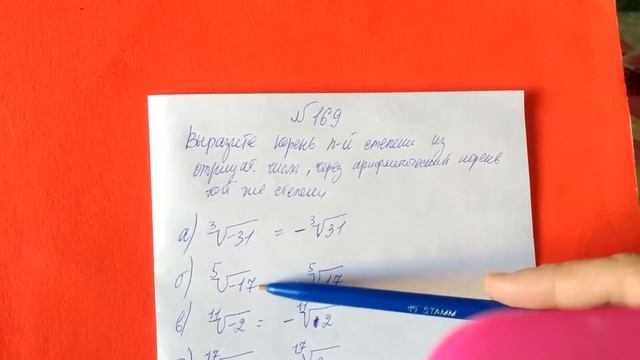 №169
Выразите корень n-й степени из
отрицат. числа, через арифметический корень
той же степени
а) ³√-31 = -³√31
б) ⁵√-17 ⁵√17
в) ¹¹√-2 = -¹¹√2
19 STAMM